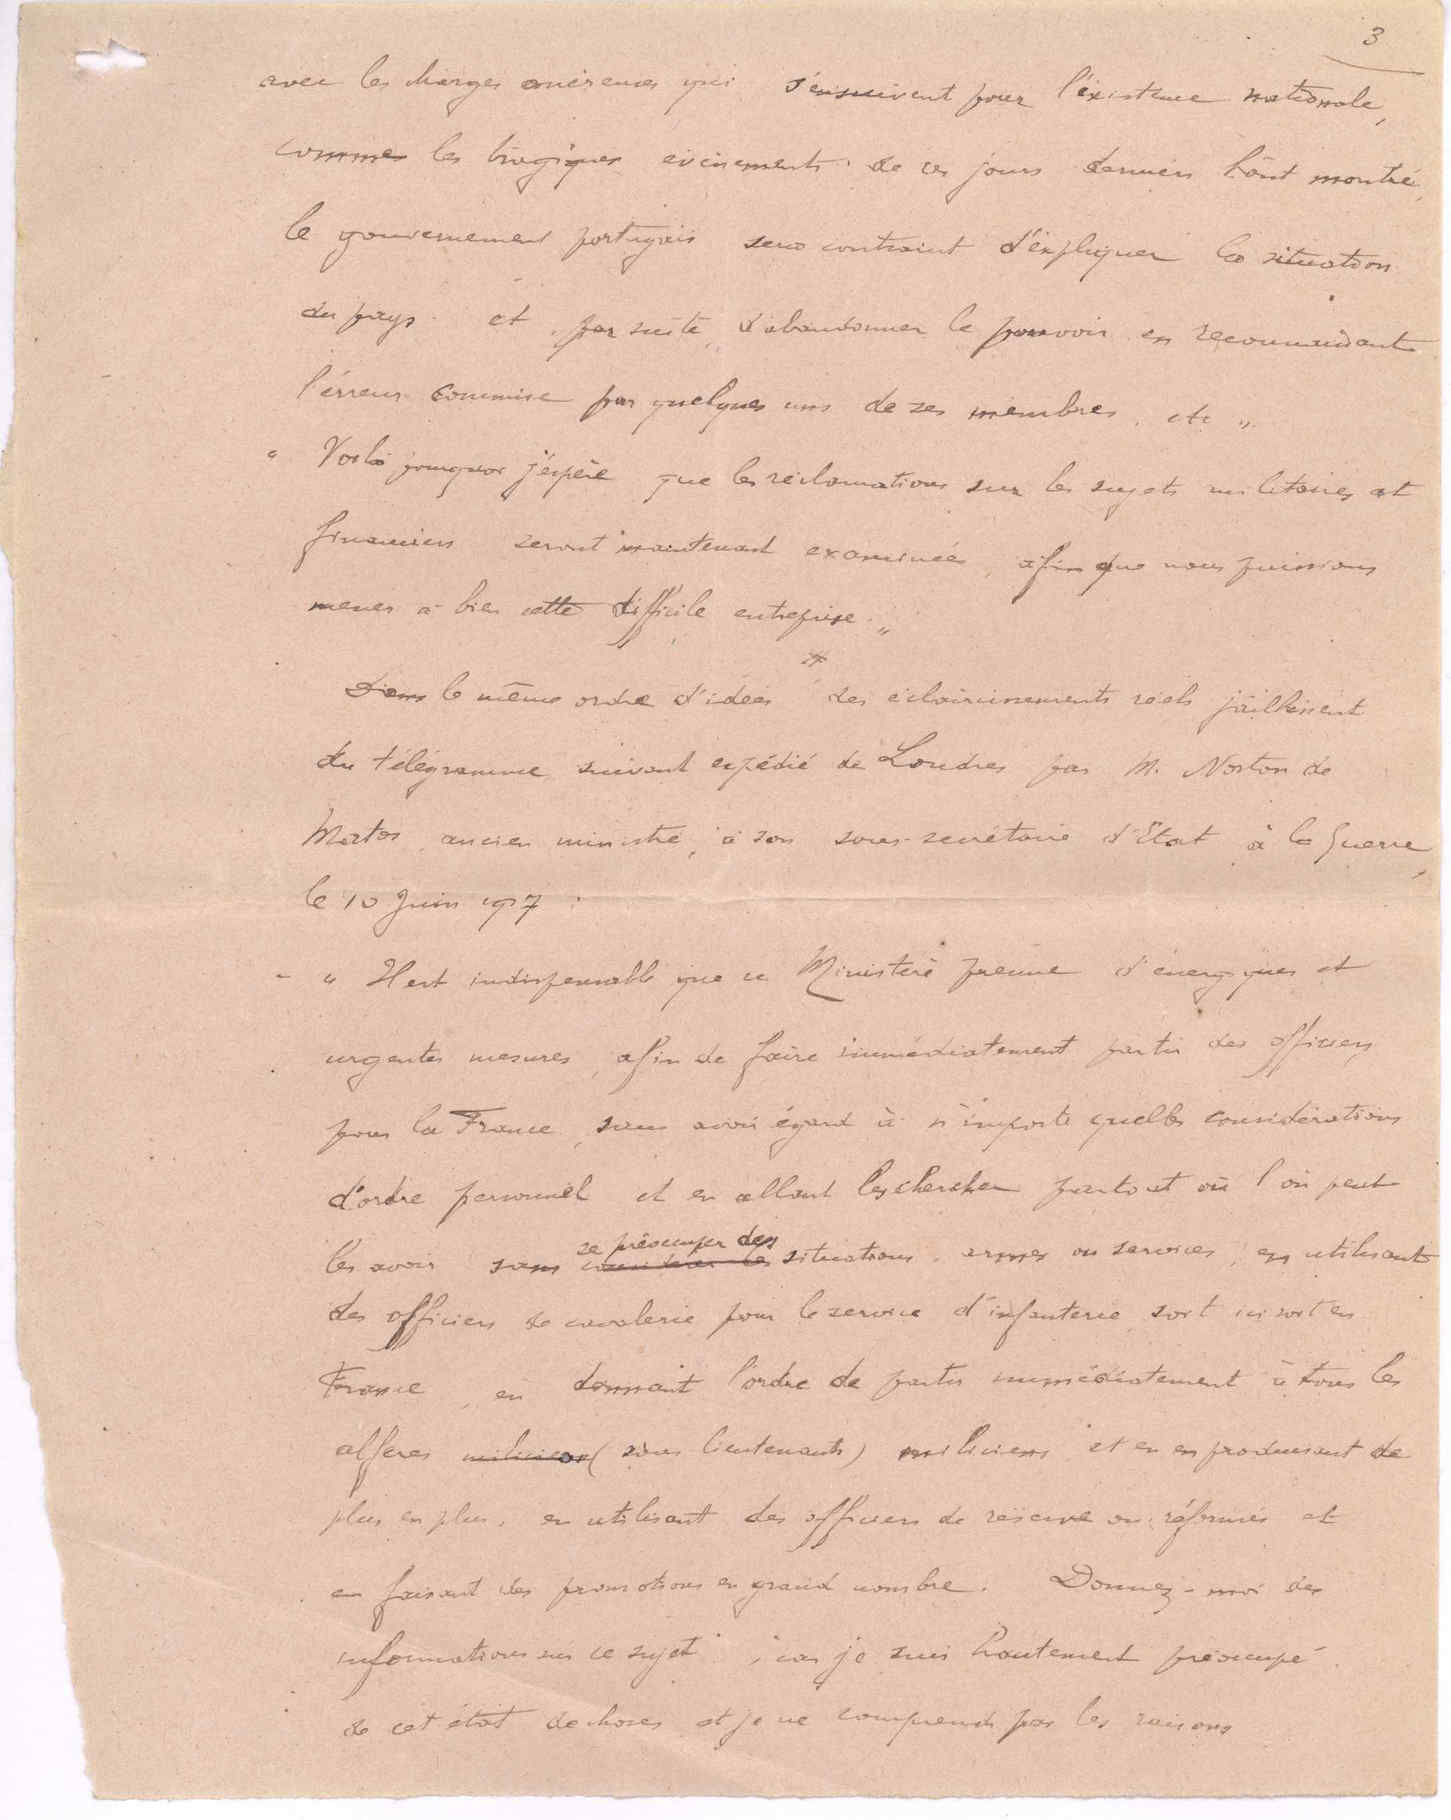 3
avec les charges onéreuses qui s'ensuivent pour l'éxistence nationale,
comme les tragiques evénements de ces jours derniers l'ont montré,
le gouvernement portugais sera contraint d'éxpliquer la situation
du pays et, par suite, d'abandonner le pouvoir en recommandant
l'érreur commise par quelques uns de ses membres, etc „
" Voilà pourquoi j'éspère que les réclamations sur les sujets militaires et
financiers seront maintenant examinées, afin que nous puissions
mener à bien cette difficile entreprise. „
Dans le même ordre d'idées des éclaircissements réels jaillissent
du télégramme suivant expédié de Londres par M. Norton de
Matos, ancien ministre, à son sous-secrétaire d'Etat à la Guerre,
le 10 Juin 1917 :
- " Il est indispensable que ce Ministère prenne d'énergiques et
urgentes mesures, afin de faire immédiatement partir des officiers
pour la France, sans avoir égard à n'importe quelles considérations
d'ordre personnel et en allant les chercher partout où l'on peut
les avoir sans se préoccuper des situations, armes ou services, en utilisant
des officiers de cavalerie pour le service d'infanterie soit ici soit en
France, en donnant l'ordre de partir immédiatement à tous les
alferes milicianos (sous lieutenants) miliciens et en en produisant de
plus en plus, en utilisant des officiers de réserve ou réformés et
en faisant des promotions en grand nombre. Donnez-moi des
informations sur ce sujet, car je suis hautement préoccupé
de cet état de choses et je ne comprends pas les raisons